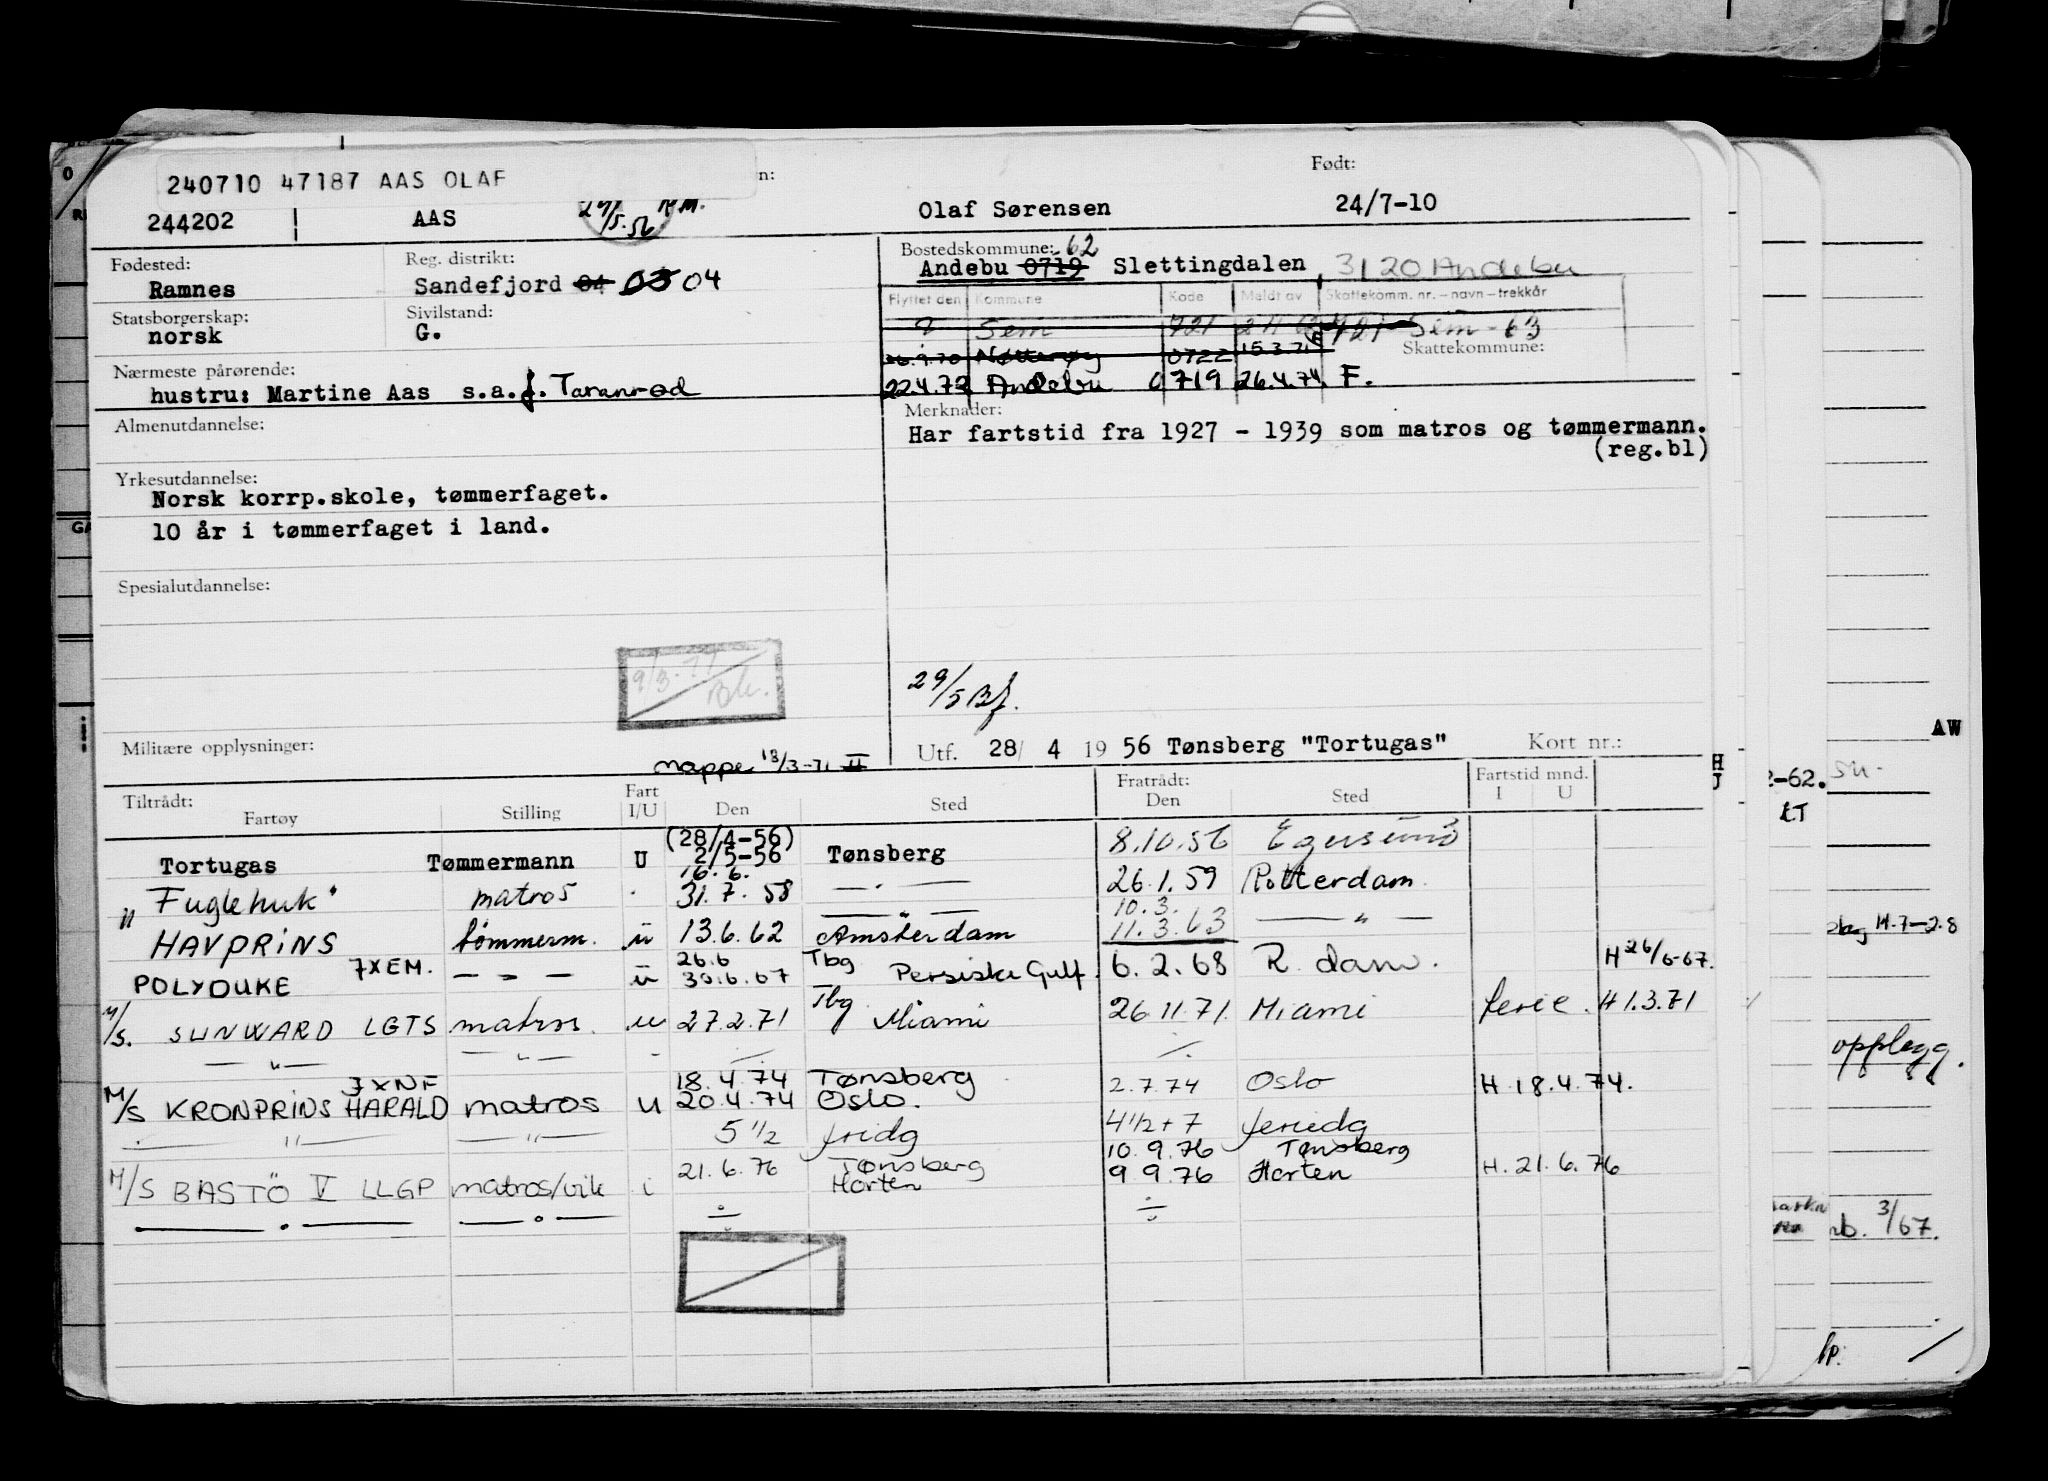 240710 47187 AAS OLAF
Født:
244202 AAS 29/5.56 Olaf Sørensen 24/7-10
Fødested: Reg. distrikt: Bostedskommune: 62
Ramnes Sandefjord 04 03 04 Andebu 0719 Slettingdalen, 3120 Andebu
Flyttet den Kommune Kode Meldt av Skattekomm. nr. – navn – trekkår
Statsborgerskap: Sivilstand:
norsk G.
? Sem 721 Sem - 63
26.9.70 Nøtterøy 0722 15.3.71 Skattekommune:
Nærmeste pårørende:
hustru: Martine Aas s.a.f. Taranrød
22.4.72 Andebu 0719 26.4.74 F.
Almenutdannelse: Merknader:
Har fartstid fra 1927 - 1939 som matros og tømmermann.
(reg.bl)
Yrkesutdannelse:
Norsk korrp.skole, tømmerfaget.
10 år i tømmerfaget i land.
Spesialutdannelse:
9/3-71
29/5 Bf.
Militære opplysninger: mappe 18/3-71 II
Utf. 28/ 4 19 56 Tønsberg "Tortugas" Kort nr.:
Tiltrådt: Fratrådt: Fartstid mnd.
Fartøy Stilling Fart I/U Den Sted Den Sted I U
(28/4-56)
Tortugas Tømmermann U 2/5-56 Tønsberg 8.10.56 Egersund
16.6.
"Fuglehuk" matros " 31.7.58 — " — 26.1.59 Rotterdam
10.3.
HAVPRINS tømmerm. u 13.6.62 Amsterdam 11.3.63 — " —
7XEM. 26.6 Tbg
POLYDUKE — " — u 30.6.67 Persiske Gulf. 6.2.68 R.dam. H 26/6-67.
Tbg
M/S. SUNWARD LGTS matros. u 27.2.71 Miami 26.11.71 Miami ferie. H 1.3.71
— " — — " — - ·/. ·/.
JXNF 18.4.74 Tønsberg
M/S KRONPRINS HARALD matros u 20.4.74 Oslo. 2.7.74 Oslo H 18.4.74.
— " — — " — 5 1/2 fridg 4 1/2 + 7 feriedg
21.6.76 Tønsberg 10.9.76 Tønsberg
M/S BASTÖ V LLGP matros/vik i Horten 9.9.76 Horten H. 21.6.76
— " — — " — ÷ ÷
AW
2-62.
LT
H.7-2.8
opplegg.
nb. 3/67.